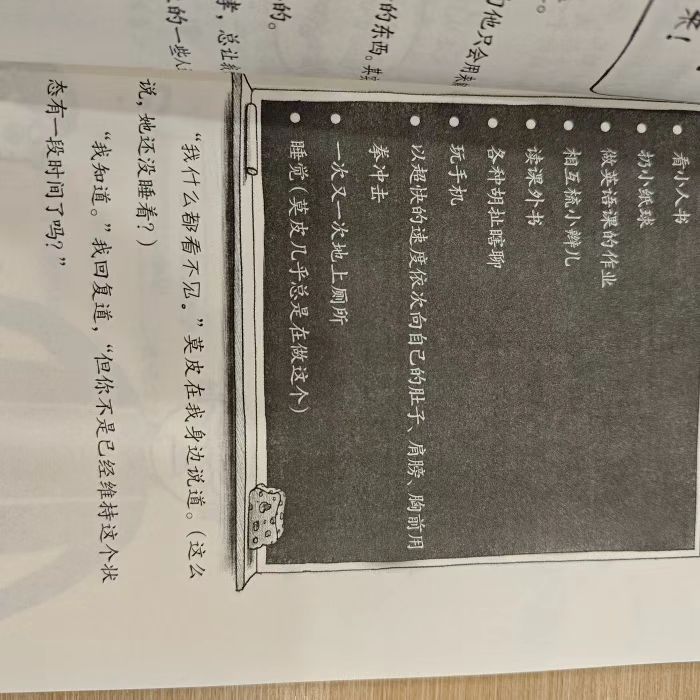 看小人书
扔小纸球
做英语课的作业
相互梳小辫儿
读课外书
各种胡扯瞎聊
玩手机
以超快的速度依次向自己的肚子、肩膀、胸前用
拳冲击
一次又一次地上厕所
睡觉（莫皮几乎总是在做这个）
“我什么都看不见。”莫皮在我身边说道。（这么
说，她还没睡着？）
“我知道。”我回复道，“但你不是已经维持这个状
态有一段时间了吗？”
他只会用来
的东西。其
的。
，总让
的一些人